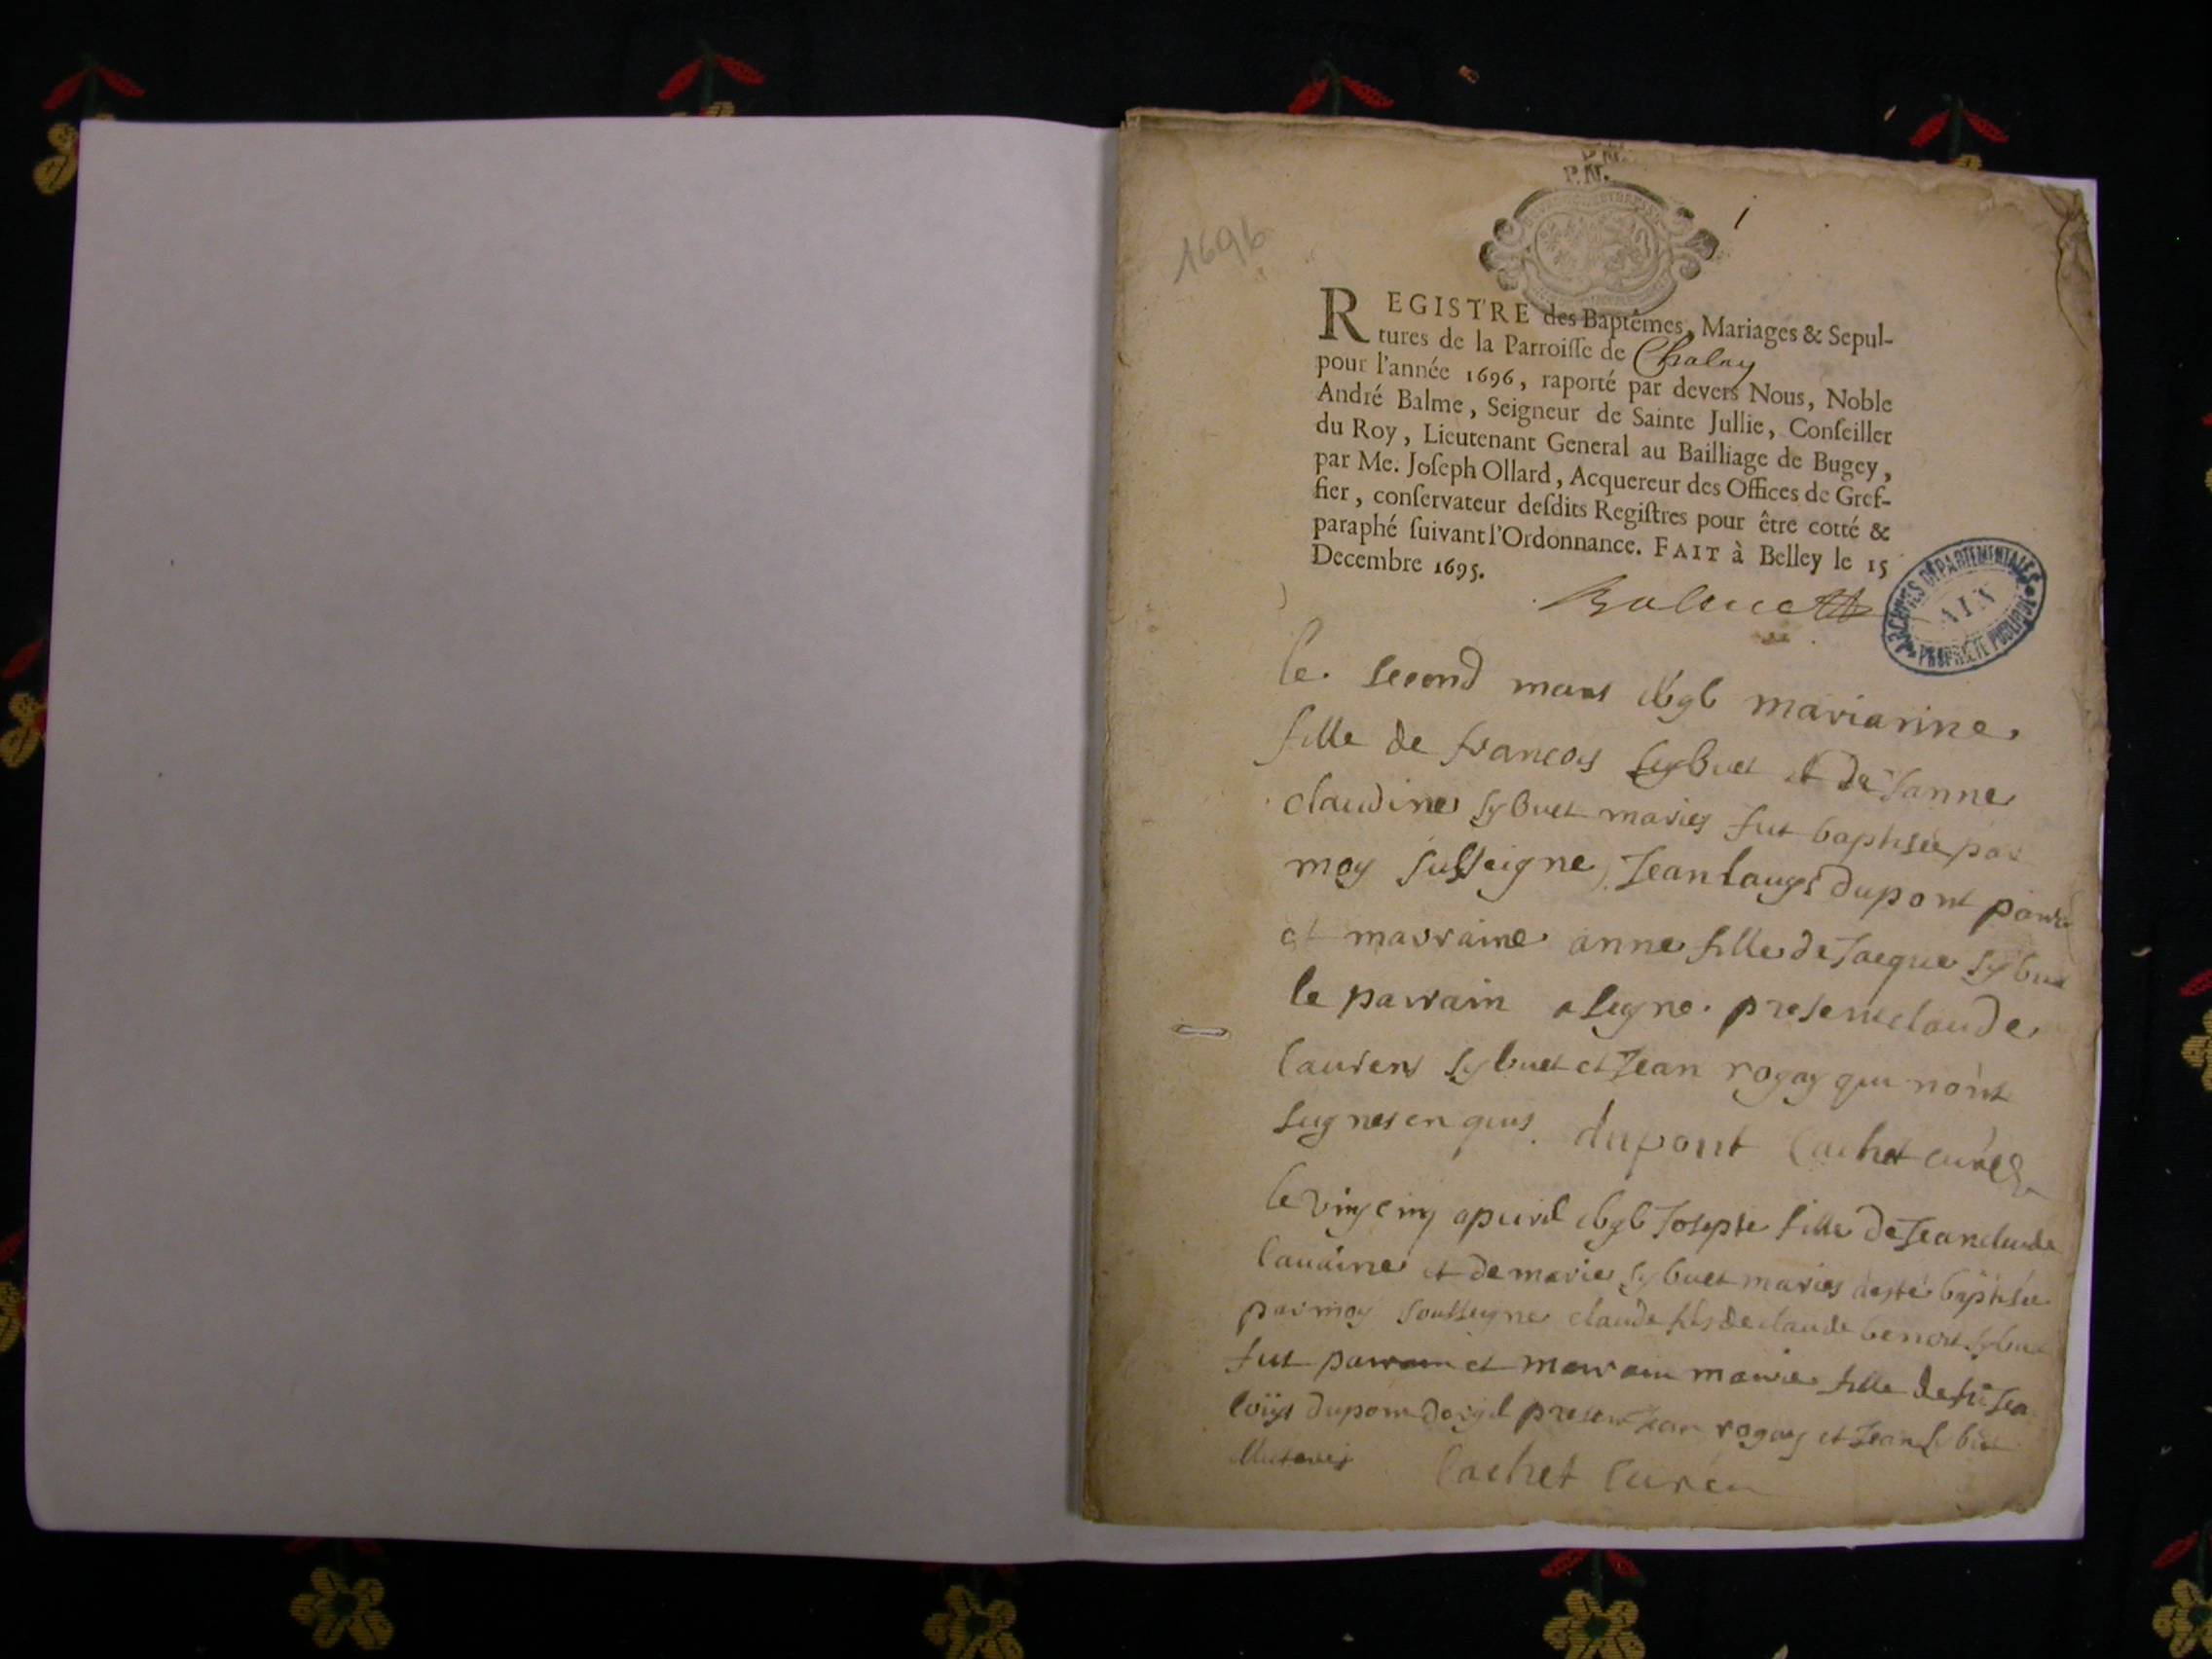 1696
P.N.
P.N.
1
REGISTRE des Baptêmes, Mariages & Sepul-
tures de la Parroisse de Chaley
pour l'année 1696, raporté par devers Nous, Noble
André Balme, Seigneur de Sainte Jullie, Conseiller
du Roy, Lieutenant General au Bailliage de Bugey,
par Me. Joseph Ollard, Acquereur des Offices de Gref-
fier, conservateur desdits Registres pour être cotté &
paraphé suivant l'Ordonnance. FAIT à Belley le 15
Decembre 1695.
ARCHIVES DEPARTEMENTALES
AIN
PROPRIETE PUBLIQUE
le second mars marianne
fille de francois sybuet et de Janne
claudine sybuet maries fut baptisée par
moy sulseigne Jean louys dupont
et marraine anne fille de Jacque sybuet
le parrain a signe present claude
laurent sybuet et Jean rogay qui nont
signes en quis dupont Cachet curé
le vingcinq apuril Josephe fille de Jean claude
et de marie sybuet maries aesté baptisée
par moy soulseigne claude fils de claude benoit sybuet
fut parrain et marrain marie fille de fu Jea
loüys dupont present Jean rogay et Jean sybuet
Cachet Curé